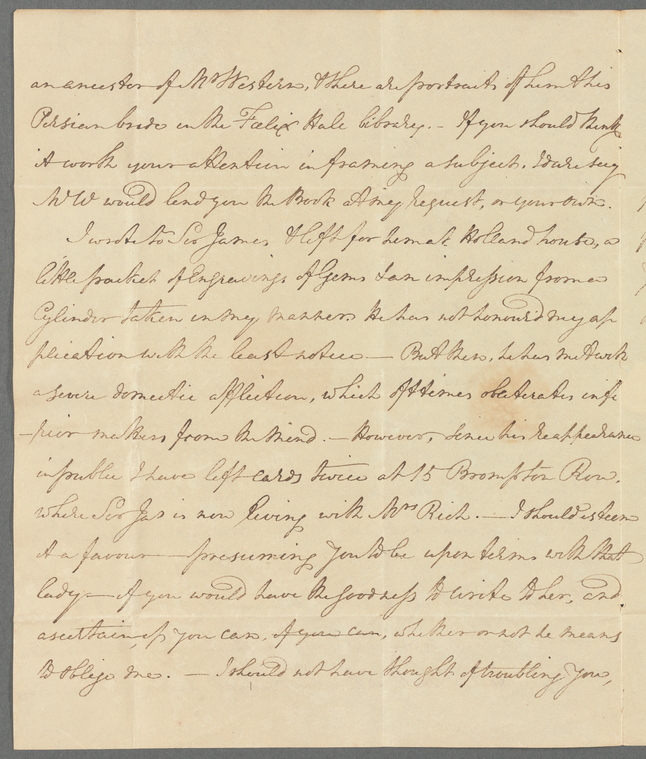 an ancestor of Mr Western, & there are portraits of him & his
Persian bride in the Fœlix Hale library. – If you should think
it worth your attention in framing a subject, I dare say
Mr W would lend you the Book at my request, or your own.
I wrote to Sir James & left for him at Holland house, a
little packet of Engravings of Gems & an impression from a
Cylinder taken in my manner. He has not honour'd my ap
plication with the least notice — But then, he has met with
a severe domestic affliction, which oft times obliterates infe
-rior matters from the mind. — However, since his reappearance
in public I have left cards twice at 15 Brompton Row.
where Sir Jas is now living with Mrs Rich. — I should esteem
it a favour — presuming you to be upon terms with that
lady – if you would have the goodness to write to her, and
ascertain, if you can, if you can, whether or not he means
to oblige me. — I should not have thought of troubling you,